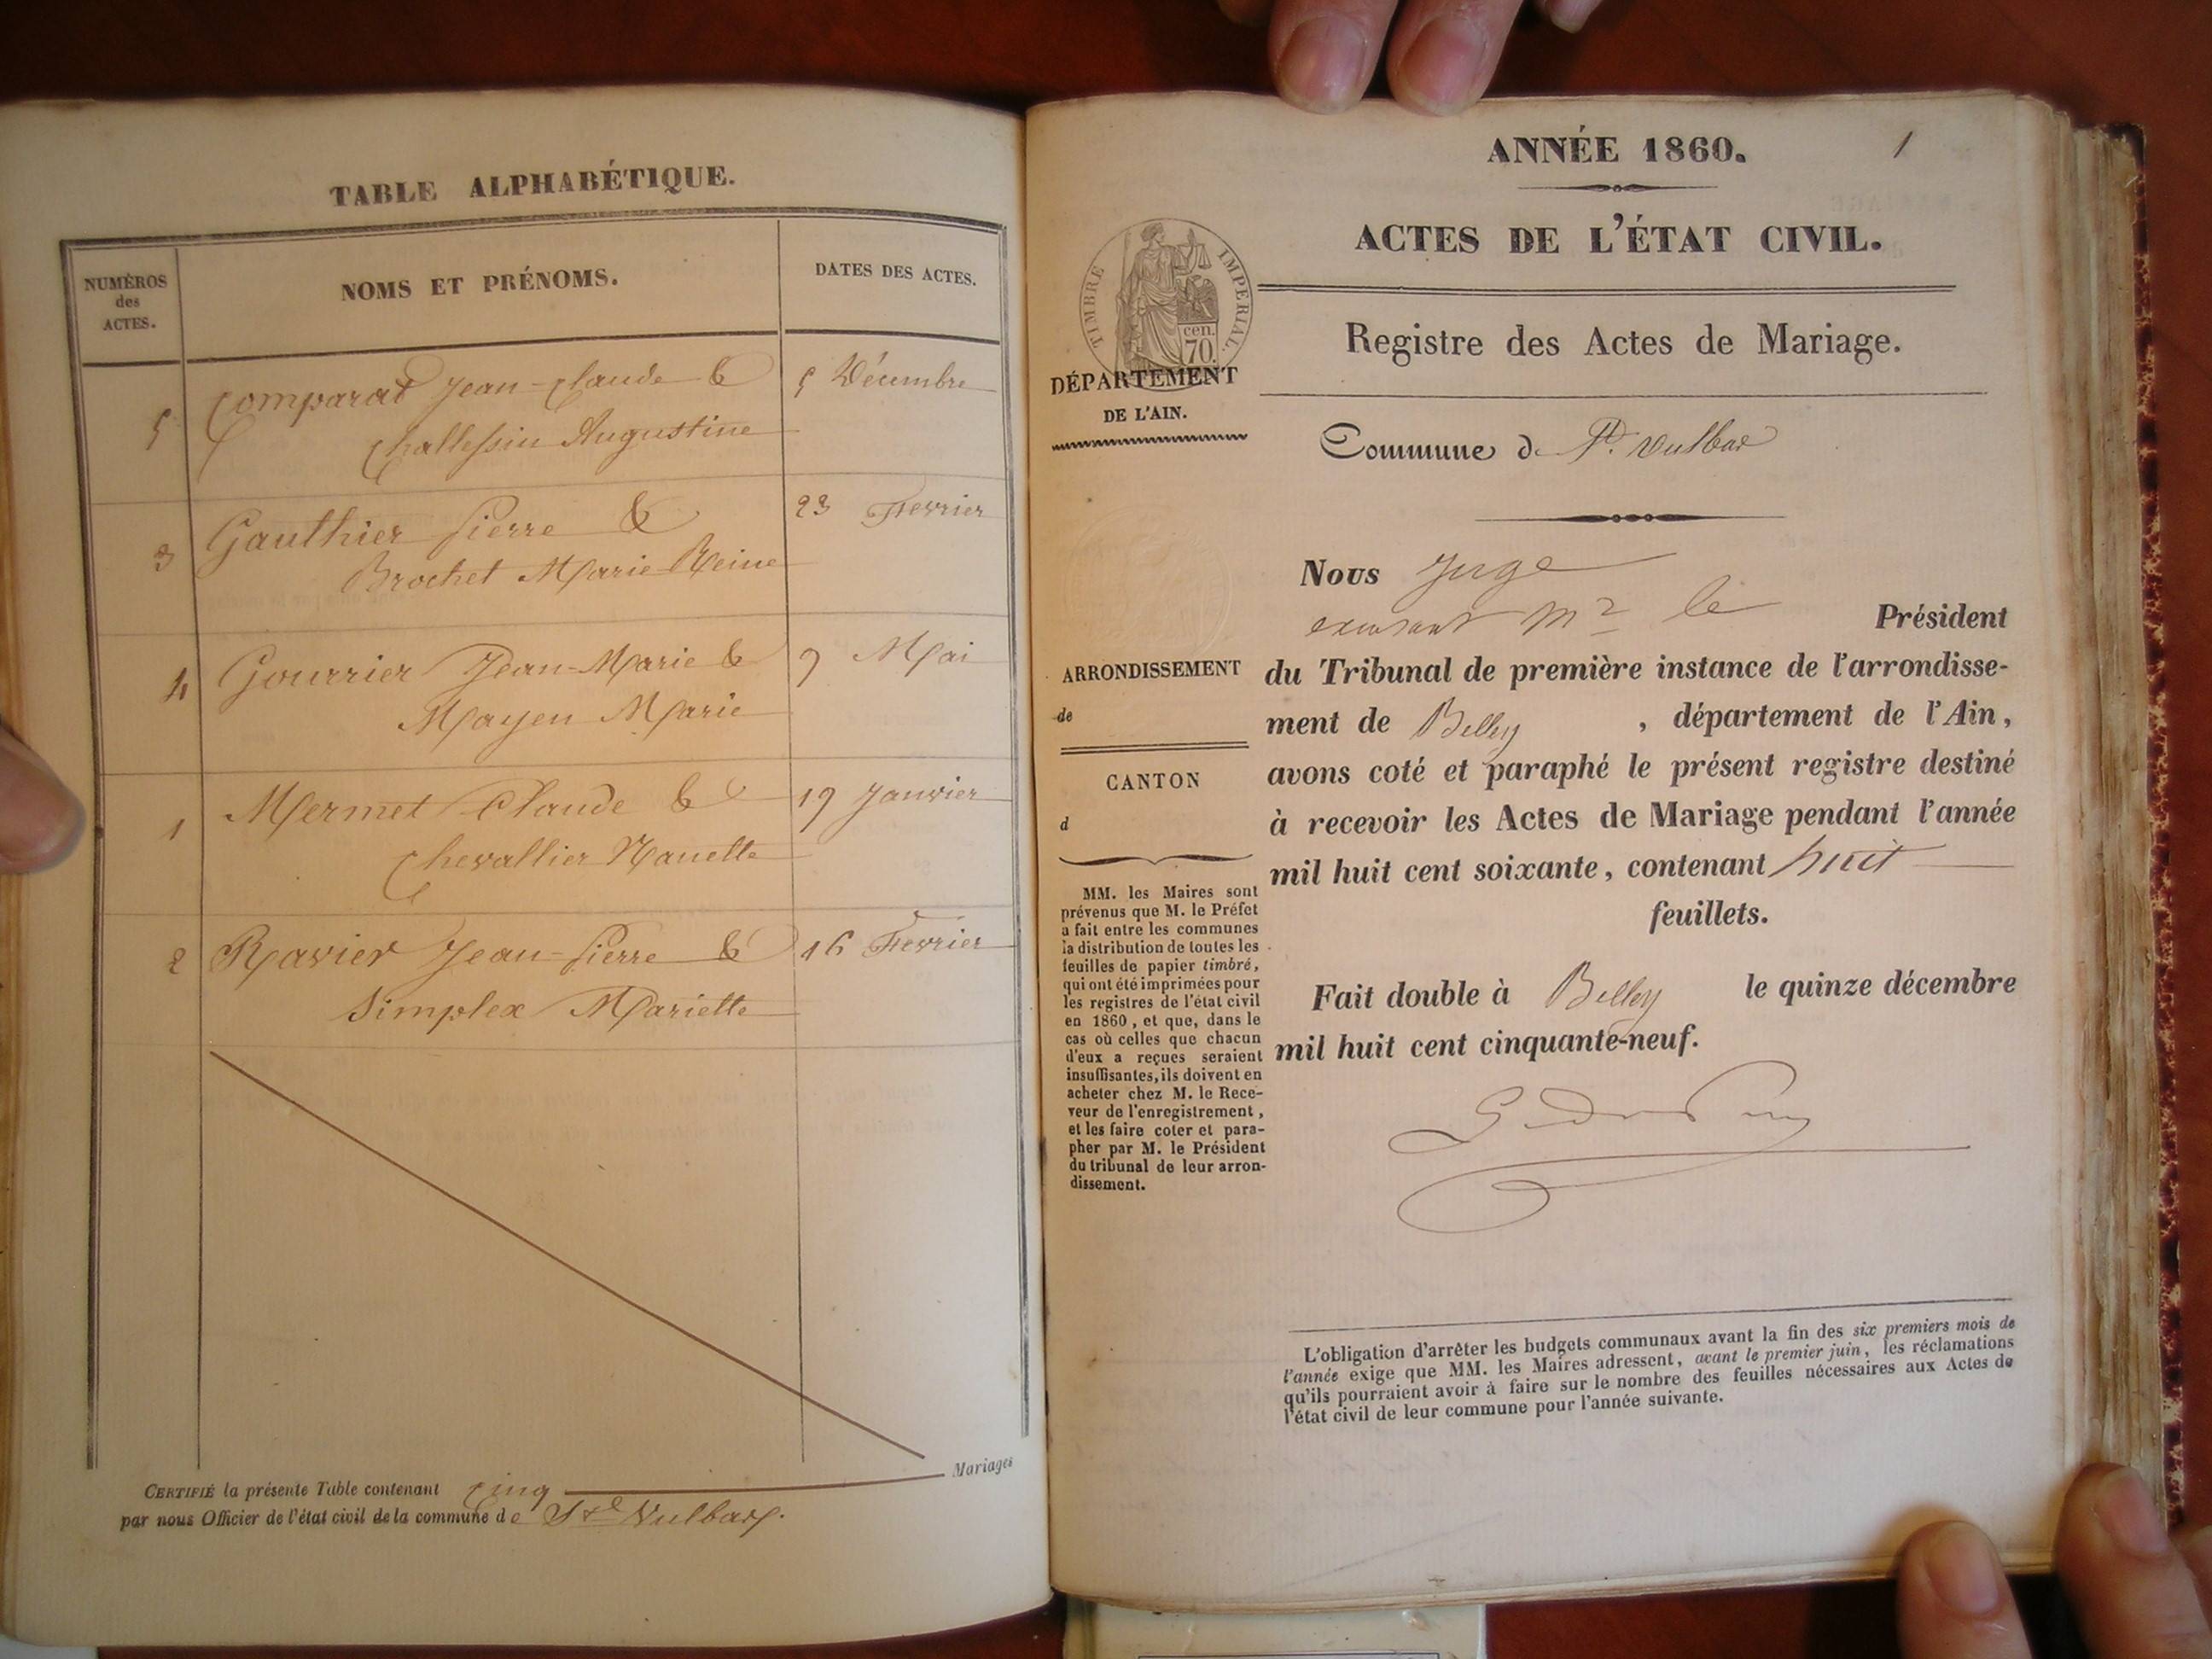 TABLE ALPHABÉTIQUE.
NUMÉROS
des
ACTES.
NOMS ET PRÉNOMS.
DATES DES ACTES.
5 Comparat Jean-Claude & 5 Décembre
Challessin Augustine
3 Gauthier Pierre & 23 Fevrier
Brochet Marie Reine
4 Gourrier Jean-Marie & 9 Mai
Mayen Marie
1 Mermet Claude & 19 Janvier
Chevallier Nanette
2 Ravier Jean-Pierre & 16 Fevrier
Simplex Mariette
CERTIFIÉ la présente Table contenant Cinq Mariages
par nous Officier de l'état civil de la commune de St Vulbas.
1
ANNÉE 1860.
ACTES DE L'ÉTAT CIVIL.
TIMBRE IMPERIAL.
cen.
70.
Registre des Actes de Mariage.
DÉPARTEMENT
DE L'AIN.
Commune de St. Vulbas
Nous Juge
excusant Mr le Président
du Tribunal de première instance de l'arrondisse-
ment de Belley , département de l'Ain,
avons coté et paraphé le présent registre destiné
à recevoir les Actes de Mariage pendant l'année
mil huit cent soixante, contenant huit
feuillets.
Fait double à Belley le quinze décembre
mil huit cent cinquante-neuf.
ARRONDISSEMENT
de
CANTON
d
MM. les Maires sont
prévenus que M. le Préfet
a fait entre les communes
la distribution de toutes les
feuilles de papier timbré,
qui ont été imprimées pour
les registres de l'état civil
en 1860, et que, dans le
cas où celles que chacun
d'eux a reçues seraient
insuffisantes, ils doivent en
acheter chez M. le Rece-
veur de l'enregistrement,
et les faire coter et para-
pher par M. le Président
du tribunal de leur arron-
dissement.
L'obligation d'arrêter les budgets communaux avant la fin des six premiers mois de
l'année exige que MM. les Maires adressent, avant le premier juin, les réclamations
qu'ils pourraient avoir à faire sur le nombre des feuilles nécessaires aux Actes de
l'état civil de leur commune pour l'année suivante.